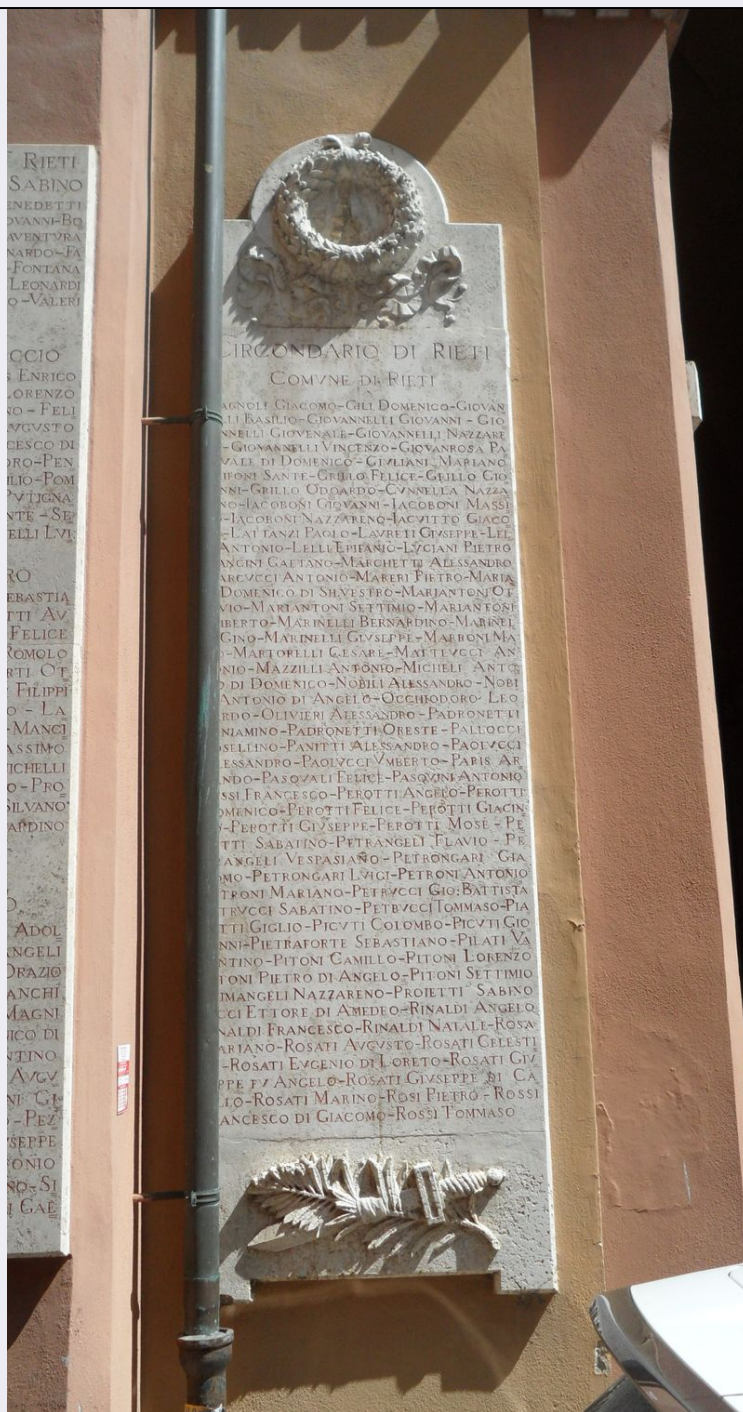 RIETI
SABINO
ENEDETTI
OVANNI-BO
AVENTVRA
NARDO-FA
-FONTANA
LEONARDI
O-VALERI
CCIO
ENRICO
LORENZO
NO-FELI
AVGVSTO
CESCO DI
DRO-PEN
ILIO-POM
PVTIGNA
NTE-SE
ELLI LVI
RO
EBASTIA
TTI AV
FELICE
ROMOLO
RTI OT
FILIPPI
O-LA
-MANCI
ASSIMO
ICHELLI
O-PRO
SILVANO
ARDINO
O
ADOL
ANGELI
ORAZIO
ANCHI
MAGNI
NICO DI
NTINO
AVGV
NI GI
O-PEZ
VSEPPE
FONIO
NO-SI
I GAE
CIRCONDARIO DI RIETI
COMVNE DI RIETI
AGNOLI GIACOMO-GILI DOMENICO-GIOVAN
LI BASILIO-GIOVANNELLI GIOVANNI-GIO
NNELLI GIOVENALE-GIOVANNELLI NAZZARE
-GIOVANNELLI VINCENZO-GIOVANROSA PA
VALE DI DOMENICO-GIVLIANI MARIANO
IFONI SANTE-GRILLO FELICE-GRILLO GIO
NNI-GRILLO ODOARDO-CVNNELLA NAZZA
NO-IACOBONI GIOVANNI-IACOBONI MASSI
-IACOBONI NAZZARENO-IACVITTO GIACO
-LATTANZI PAOLO-LAVRETI GIVSEPPE-LEL
ANTONIO-LELLI EPIFANIO-LVCIANI PIETRO
ANCINI GAETANO-MARCHETTI ALESSANDRO
ARCVCCI ANTONIO-MARERI PIETRO-MARIA
DOMENICO DI SILVESTRO-MARIANTONI OT
VIO-MARIANTONI SETTIMIO-MARIANTONI
IBERTO-MARINELLI BERNARDINO-MARINEL
GINO-MARINELLI GIVSEPPE-MARRONI MA
-MARTORELLI CESARE-MATTEVCCI AN
NIO-MAZZILLI ANTONIO-MICHELI ANTO
O DI DOMENICO-NOBILI ALESSANDRO-NOBI
ANTONIO DI ANGELO-OCCHIODORO LEO
RDO-OLIVIERI ALESSANDRO-PADRONETTI
NIAMINO-PADRONETTI ORESTE-PALLOCCI
SELLINO-PANITTI ALESSANDRO-PAOLVCCI
ESSANDRO-PAOLVCCI VMBERTO-PARIS AR
NDO-PASQVALI FELICE-PASQVINI ANTONIO
SSI FRANCESCO-PEROTTI ANGELO-PEROTTI
OMENICO-PEROTTI FELICE-PEROTTI GIACIN
-PEROTTI GIVSEPPE-PEROTTI MOSÈ-PE
TTI SABATINO-PETRANGELI FLAVIO-PE
ANGELI VESPASIANO-PETRONGARI GIA
MO-PETRONGARI LVIGI-PETRONI ANTONIO
TRONI MARIANO-PETRVCCI GIO:BATTISTA
TRVCCI SABATINO-PETRVCCI TOMMASO-PIA
TTI GIGLIO-PICVTI COLOMBO-PICVTI GIO
NNI-PIETRAFORTE SEBASTIANO-PILATI VA
NTINO-PITONI CAMILLO-PITONI LORENZO
TONI PIETRO DI ANGELO-PITONI SETTIMIO
IMANGELI NAZZARENO-PROIETTI SABINO
CCI ETTORE DI AMEDEO-RINALDI ANGELO
NALDI FRANCESCO-RINALDI NATALE-ROSA
ARIANO-ROSATI AVGVSTO-ROSATI CELESTI
-ROSATI EVGENIO DI LORETO-ROSATI GIV
PPE FV ANGELO-ROSATI GIVSEPPE DI CA
LLO-ROSATI MARINO-ROSI PIETRO-ROSSI
ANCESCO DI GIACOMO-ROSSI TOMMASO